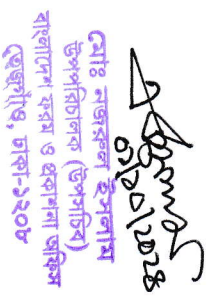 ০৭/১০/২০২৪
মোঃ নজরুল ইসলাম
উপপরিচালক (উপসচিব)
বাংলাদেশ ফরম ও প্রকাশনা অফিস
তেজগাঁও, ঢাকা-১২০৮